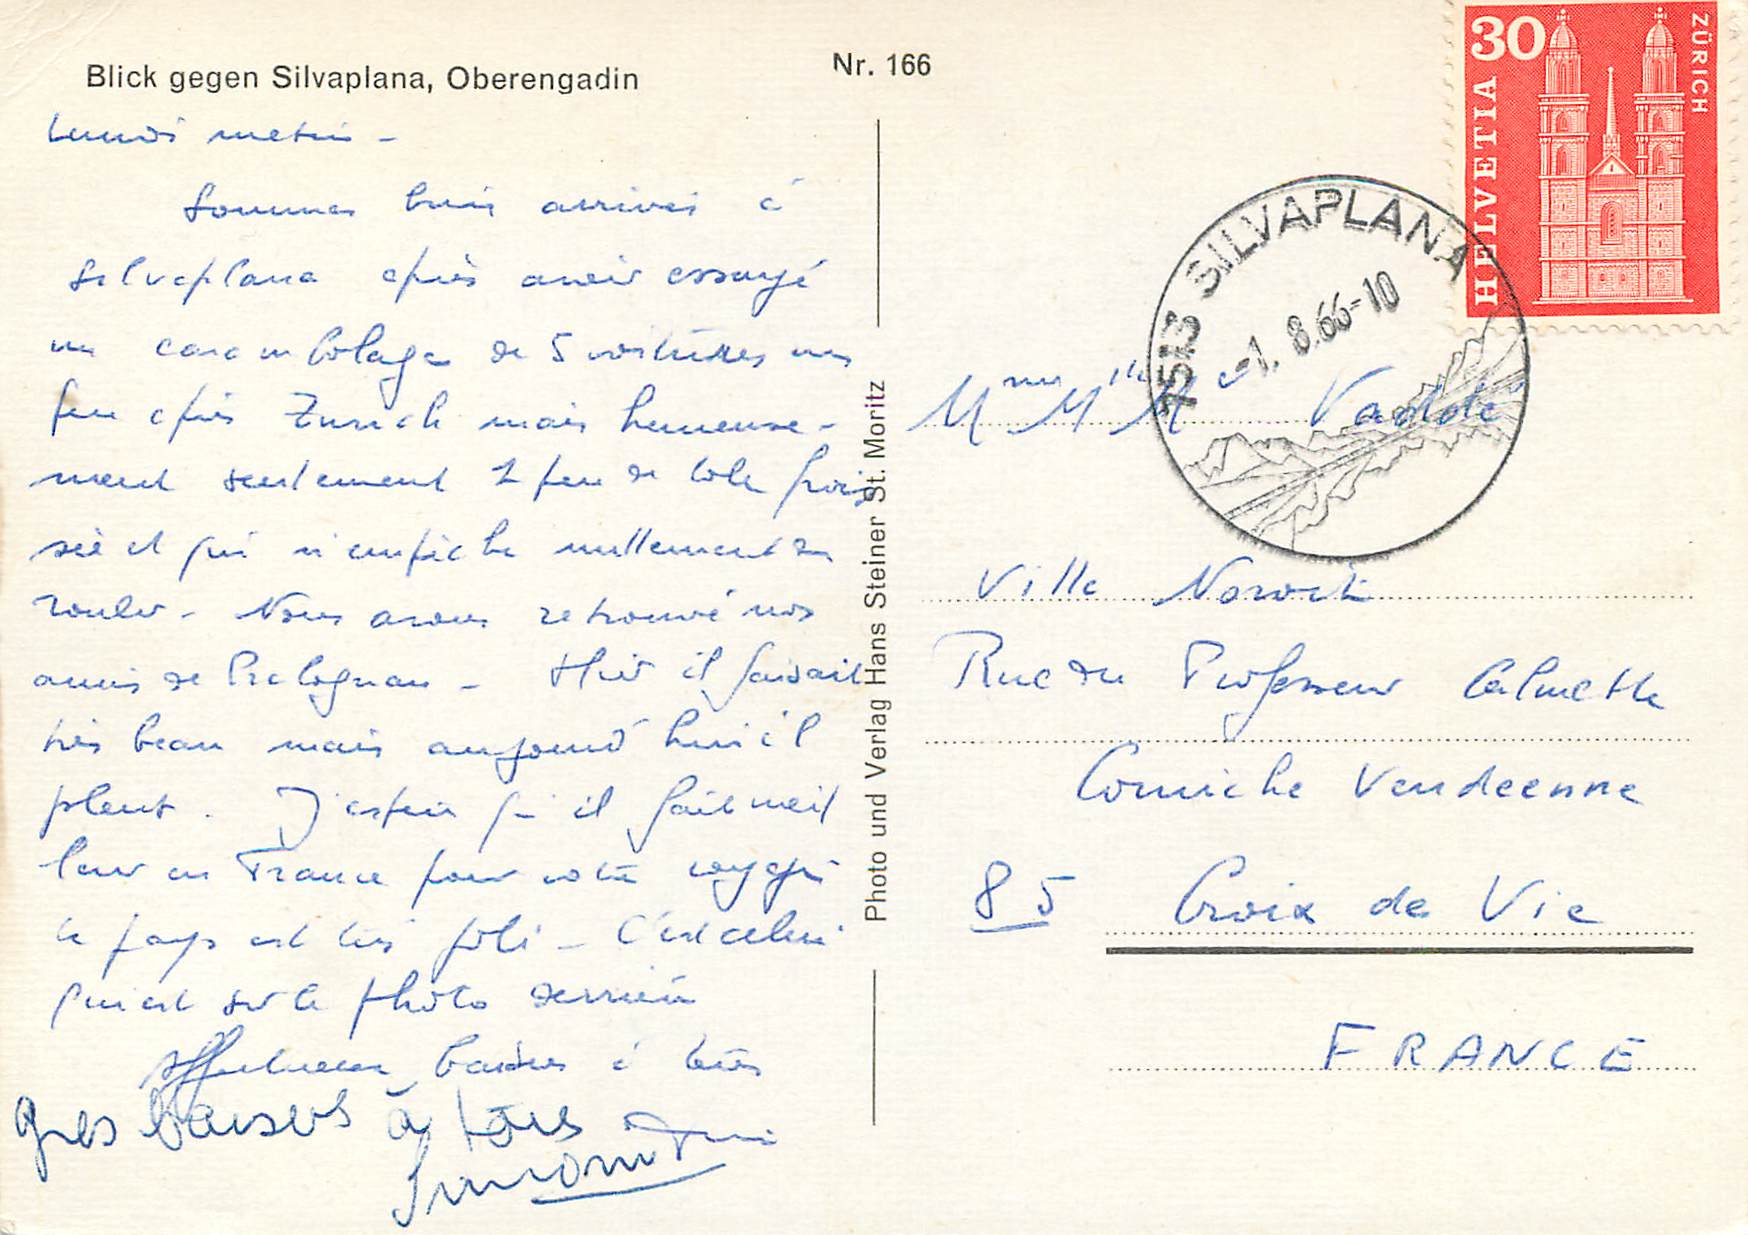 Blick gegen Silvaplana, Oberengadin
Nr. 166
Lundi matin -
Sommes bien arrivés à
Silvaplana après avoir essuyé
un carambolage de 5 voitures un
peu après Zurich mais heureuse-
ment seulement 1 peu de tole frois
sée et qui n'empêche nullement de
rouler - Nous avons retrouvé nos
amis de Pralognan - Hier il faisait
très beau mais aujourd'hui il
pleut. J'espère qu'il fait meil
leur en France pour votre voyage
le pays est très joli - C'est celui
qui est sur la photo derrière
Affectueux baisers à tous
Gros baisers à tous
Photo und Verlag Hans Steiner St. Moritz
HELVETIA 30 ZÜRICH
7513 SILVAPLANA
-1. 8.66-10
Mme Mlle M
Villa
Rue du Professeur Calmette
Corniche Vendeenne
85 Croix de Vie
FRANCE